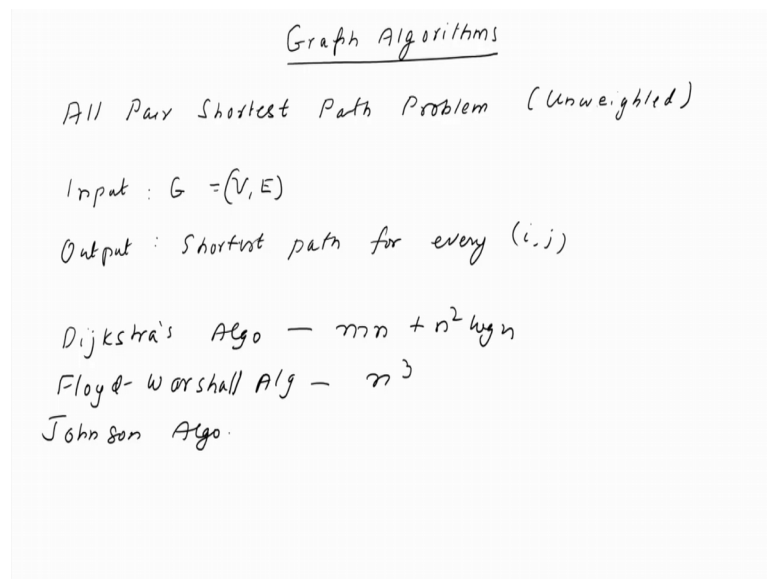 Graph Algorithms
All Pair Shortest Path Problem (Unweighted)
Input : G = (V, E)
Output : Shortest path for every (i, j)
Dijkstra's Algo — mn + n² log n
Floyd-Warshall Alg — n³
Johnson Algo.